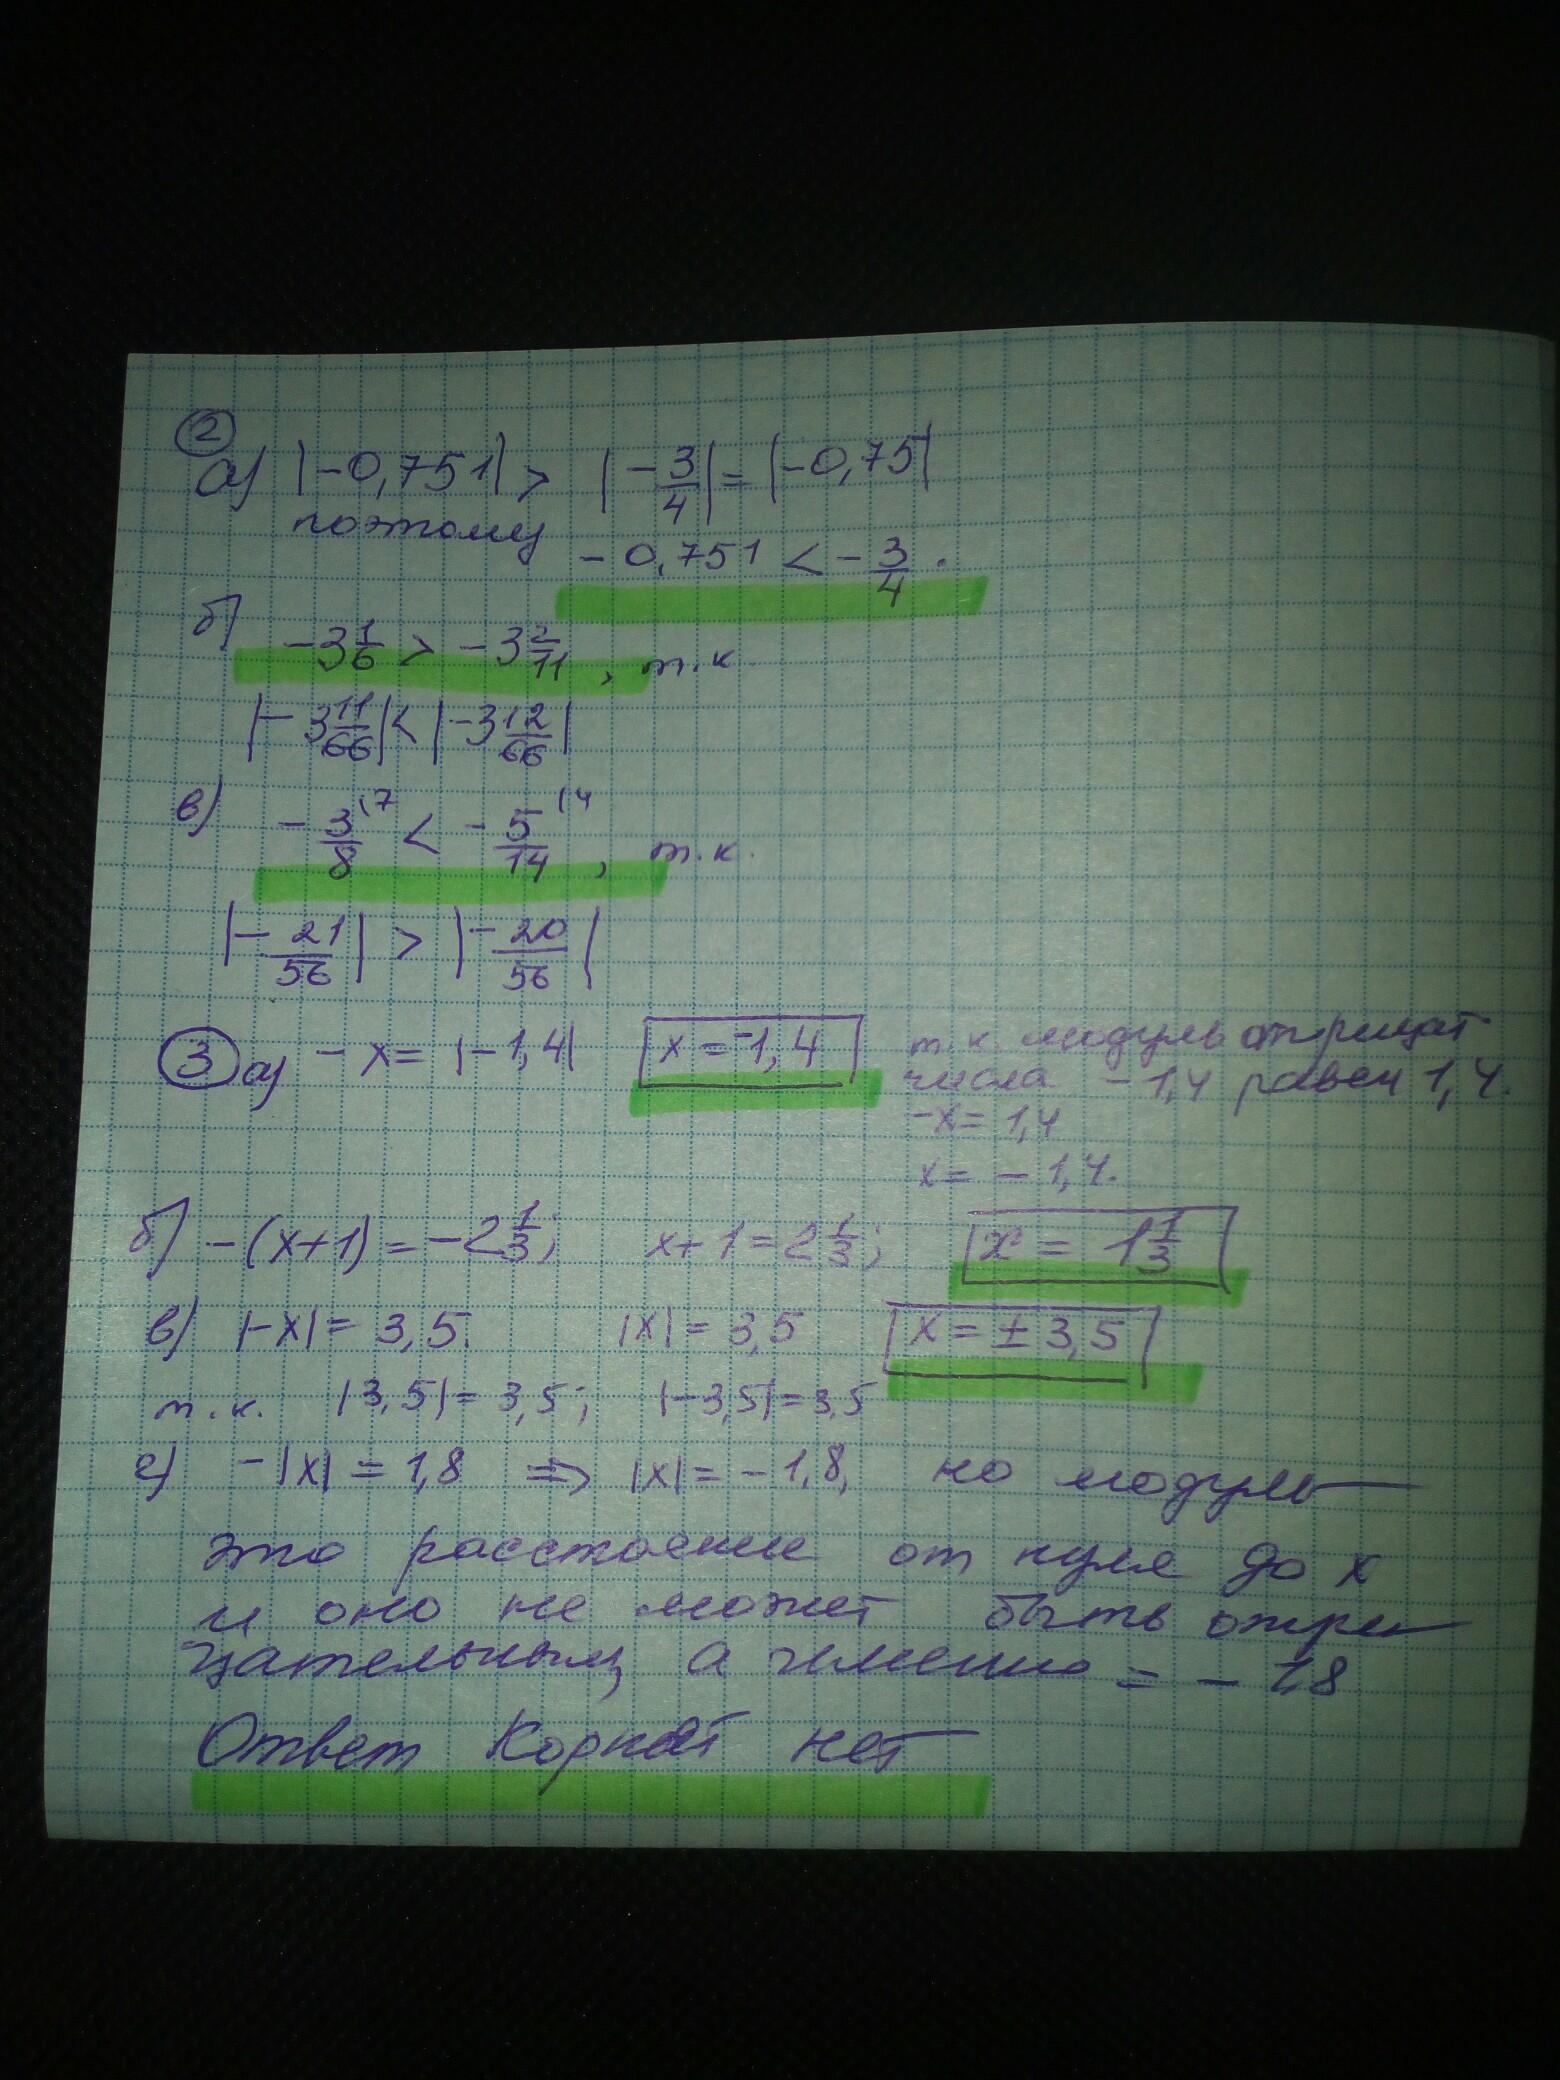 2
а) |-0,751| > |-3/4| = |-0,75|
поэтому
-0,751 < -3/4.
б) -3 1/6 > -3 2/11, т.к
|-3 11/66| < |-3 12/66|
в) -3/8 (7 < -5/14 (4, т.к.
|-21/56| > |-20/56|
3 а) -x = |-1,4| x = -1,4 т.к. модуль отрицат
числа -1,4 равен 1,4.
-x = 1,4
x = -1,4.
б) -(x+1) = -2 1/3; x+1 = 2 1/3; x = 1 1/3
в) |-x| = 3,5. |x| = 3,5 x = ± 3,5
т.к. |3,5| = 3,5; |-3,5| = 3,5
г) -|x| = 1,8 => |x| = -1,8, но модуль —
это расстояние от нуля до x
и оно не может быть отри-
цательным, а именно = -1,8
Ответ Корней нет